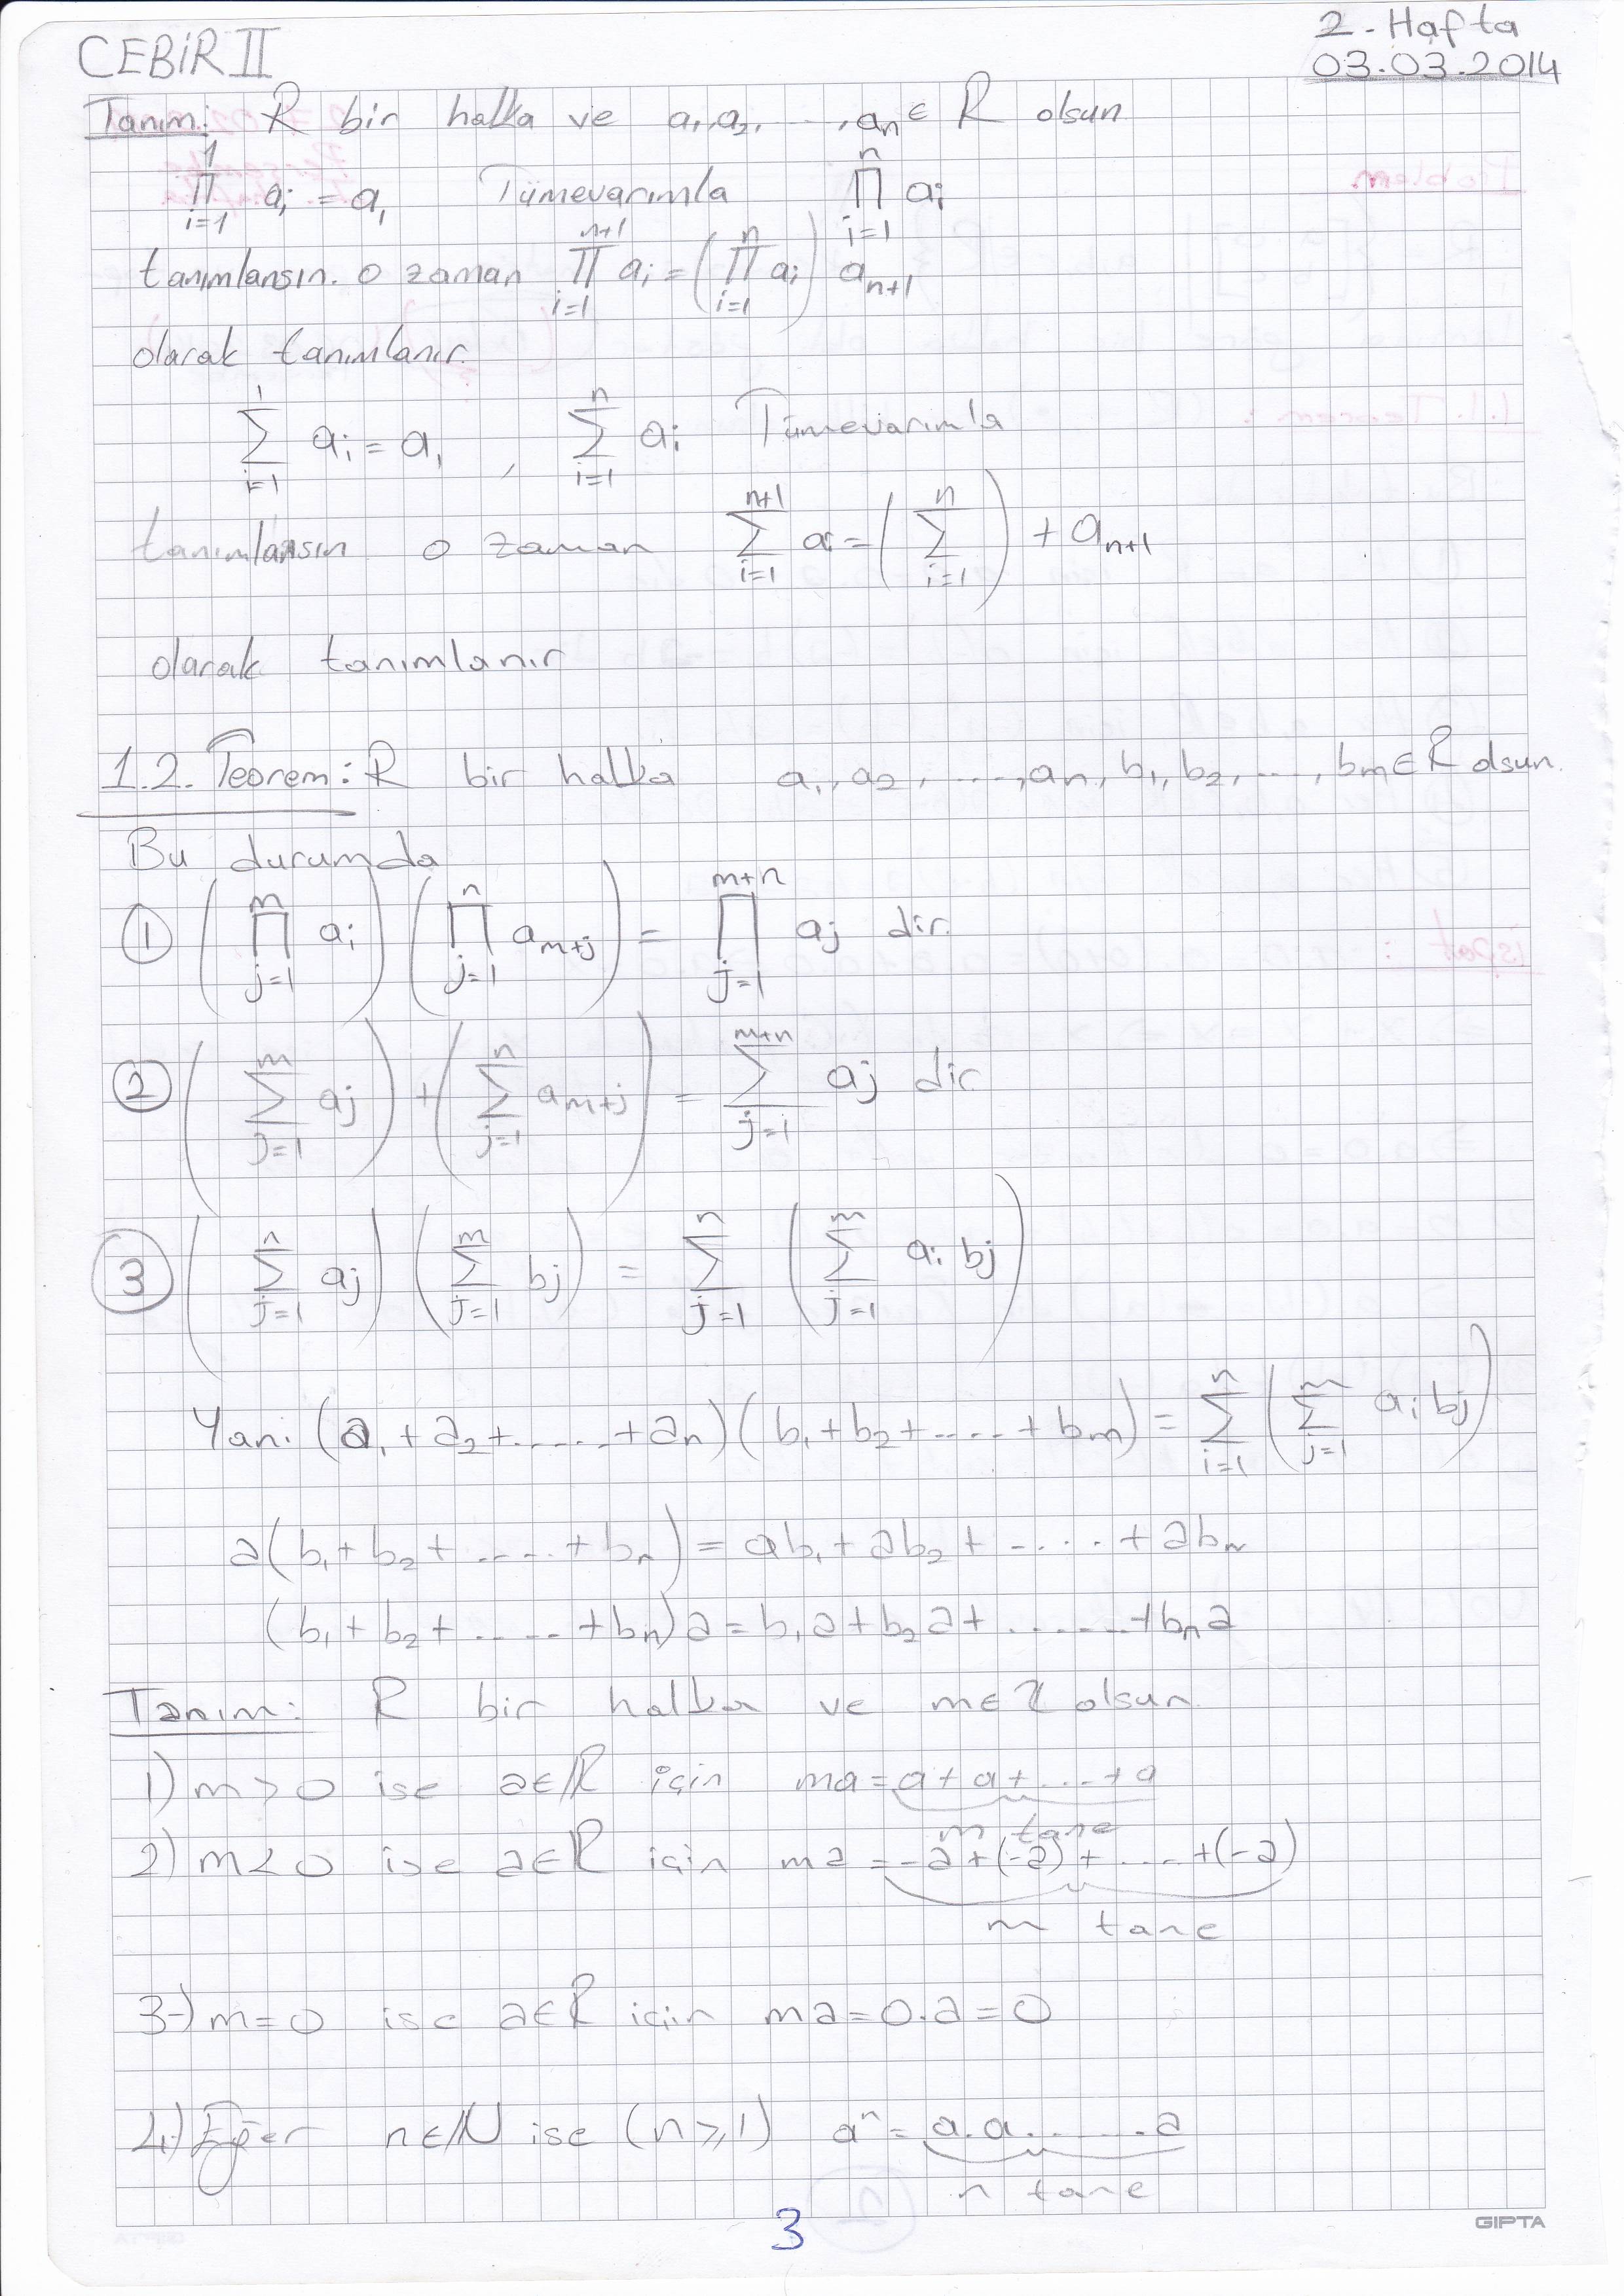 CEBİR II
2. Hafta
03.03.2014
Tanım: R bir halka ve a₁,a₂,.....,aₙ ∈ R olsun
∏_{i=1}^{1} aᵢ = a₁ Tümevarımla ∏_{i=1}^{n} aᵢ
tanımlansın. O zaman ∏_{i=1}^{n+1} aᵢ = (∏_{i=1}^{n} aᵢ) aₙ₊₁
olarak tanımlanır.
∑_{i=1}^{1} aᵢ = a₁ , ∑_{i=1}^{n} aᵢ Tümevarımla
tanımlansın o zaman ∑_{i=1}^{n+1} aᵢ = (∑_{i=1}^{n}) + aₙ₊₁
olarak tanımlanır
1.2. Teorem: R bir halka a₁,a₂,.....,aₙ,b₁,b₂,....,bₘ∈R olsun.
Bu durumda
① (∏_{j=1}^{m} aᵢ) (∏_{j=1}^{n} a_{m+j}) = ∏_{j=1}^{m+n} aⱼ dir.
② (∑_{j=1}^{m} aⱼ) + (∑_{j=1}^{n} a_{m+j}) = ∑_{j=1}^{m+n} aⱼ dir
③ (∑_{j=1}^{n} aⱼ) (∑_{j=1}^{m} bⱼ) = ∑_{j=1}^{n} (∑_{j=1}^{m} aᵢ bⱼ)
Yani (a₁ + a₂+......+aₙ)(b₁+b₂+.....+bₘ) = ∑_{i=1}^{n} (∑_{j=1}^{m} aᵢ bⱼ)
a(b₁+b₂+.....+bₙ) = ab₁+ab₂+.....+abₙ
(b₁+b₂+......+bₙ)a = b₁a+b₂a+.......+bₙa
Tanım: R bir halka ve m∈Z olsun.
1) m>0 ise a∈R için ma=a+a+....+a
m tane
2) m<0 ise a∈R için ma=-a+(-a)+....+(-a)
m tane
3-) m=0 ise a∈R için ma=0.a=0
4-) Eğer n∈N ise (n≥1) aⁿ= a.a.......a
n tane
3
GIPTA